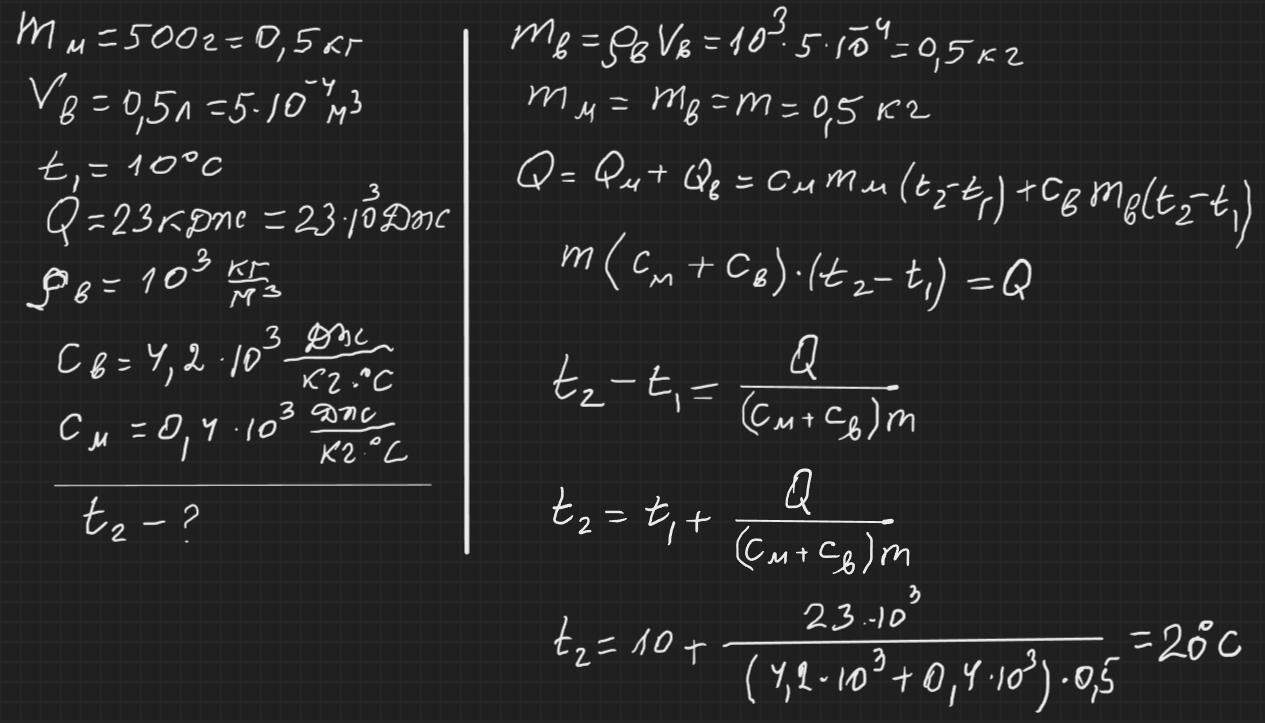 m_м = 500г = 0,5кг
V_в = 0,5л = 5·10⁻⁴ м³
t₁ = 10°C
Q = 23кДж = 23·10³Дж
ρ_в = 10³ кг/м³
c_в = 4,2·10³ Дж/кг·°C
c_м = 0,4·10³ Дж/кг·°C
t₂ – ?
m_в = ρ_в V_в = 10³·5·10⁻⁴ = 0,5кг
m_м = m_в = m = 0,5 кг
Q = Q_м + Q_в = c_м m_м (t₂–t₁) + c_в m_в(t₂–t₁)
m(c_м + c_в)·(t₂ – t₁) = Q
t₂ – t₁ = Q/(c_м + c_в)m
t₂ = t₁ + Q/(c_м + c_в)m
t₂ = 10 + 23·10³/(4,2·10³ + 0,4·10³)·0,5 = 20°C